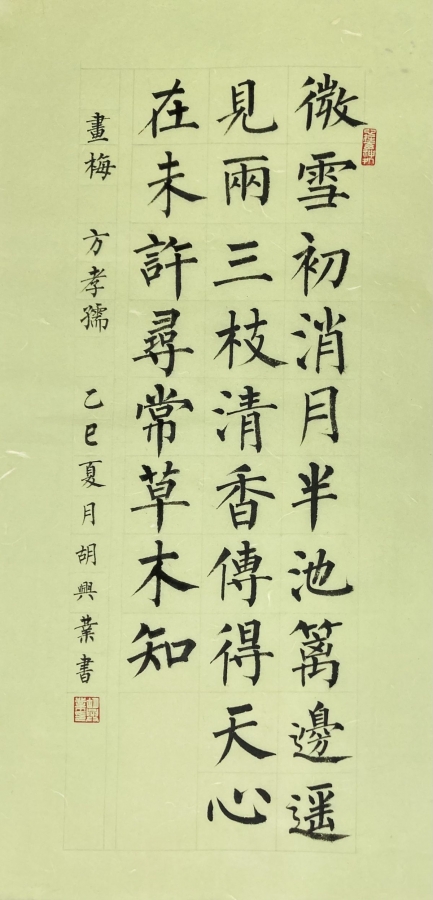 微雪初消月半池篱邊遥
見兩三枝清香傳得天心
在未許尋常草木知
畫梅 方孝孺 乙巳夏月胡興業書